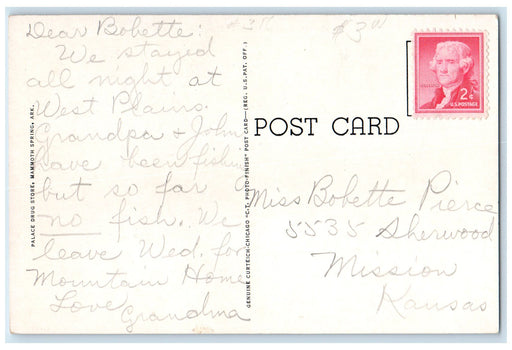 Dear Bobette:
We stayed
all night at
West Plains.
Grandpa + John
have been fishing
but so far
no fish. We
leave Wed. for
Mountain Home
Love,
Grandma
PALACE DRUG STORE, MAMMOTH SPRING, ARK.
GENUINE CURTEICH-CHICAGO "C.T. PHOTO-FINISH" POST CARD—(REG. U.S. PAT. OFF.)
$3.00
POST CARD
2¢
U.S. POSTAGE
Miss Bobette Pierce
5535 Sherwood
Mission
Kansas